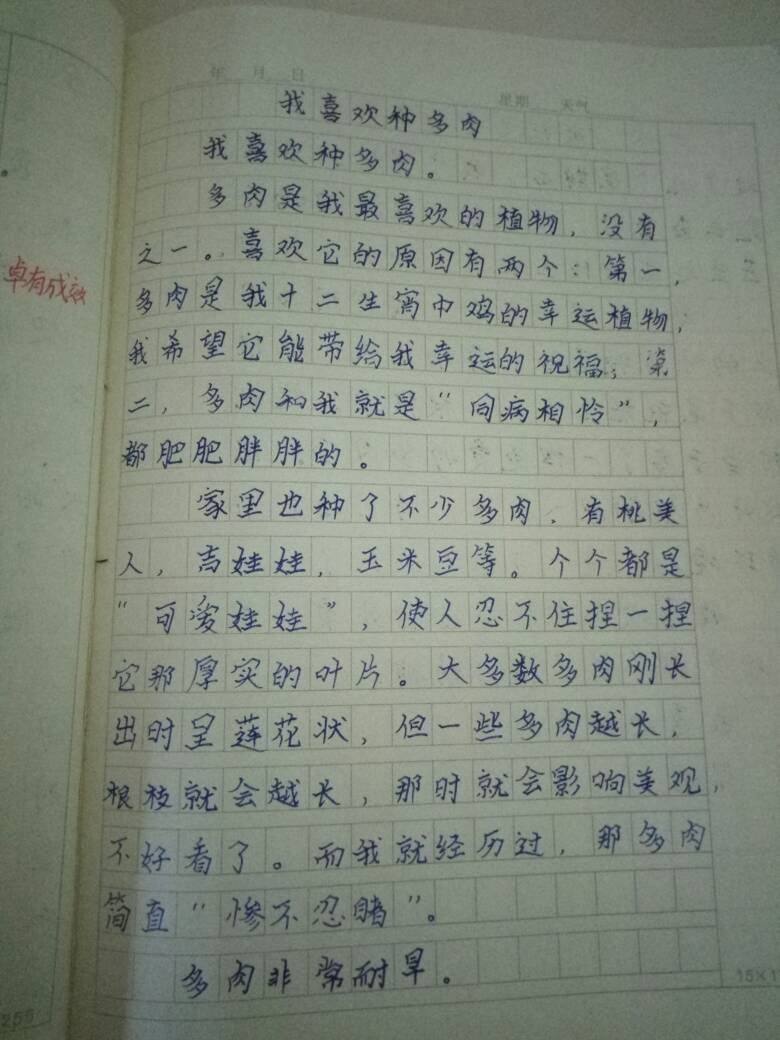 年 月 日
星期 天气
我喜欢种多肉
我喜欢种多肉。
多肉是我最喜欢的植物，没有
之一。喜欢它的原因有两个：第一，
卓有成效
多肉是我十二生宵中鸡的幸运植物，
我希望它能带给我幸运的祝福；第
二，多肉和我就是“同病相怜”，
都肥肥胖胖的。
家里也种了不少多肉，有桃美
人，吉娃娃，玉米豆等。个个都是
“可爱娃娃”，使人忍不住捏一捏
它那厚实的叶片。大多数多肉刚长
出时呈莲花状，但一些多肉越长，
根枝就会越长，那时就会影响美观，
不好看了。而我就经历过，那多肉
简直“惨不忍睹”。
多肉非常耐旱。
255